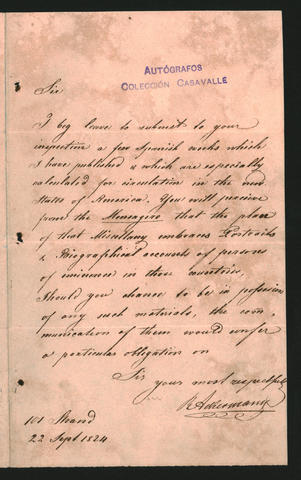 AUTÓGRAFOS
COLECCIÓN CASAVALLE
Sir
I beg leave to submit to your
inspection a few Spanish works which
I have published & which are especially
calculated for circulation in the new
States of America. You will perceive
from the Mensagero that the plan
of that Miscellany embraces Portraits
& Biographical accounts of persons
of eminence in those countries.
Should you chance to be in possession
of any such materials, the com
munication of them would confer
a particular obligation on
Sir
your most respectful
R Ackermann
101 Strand
22 Sept 1824